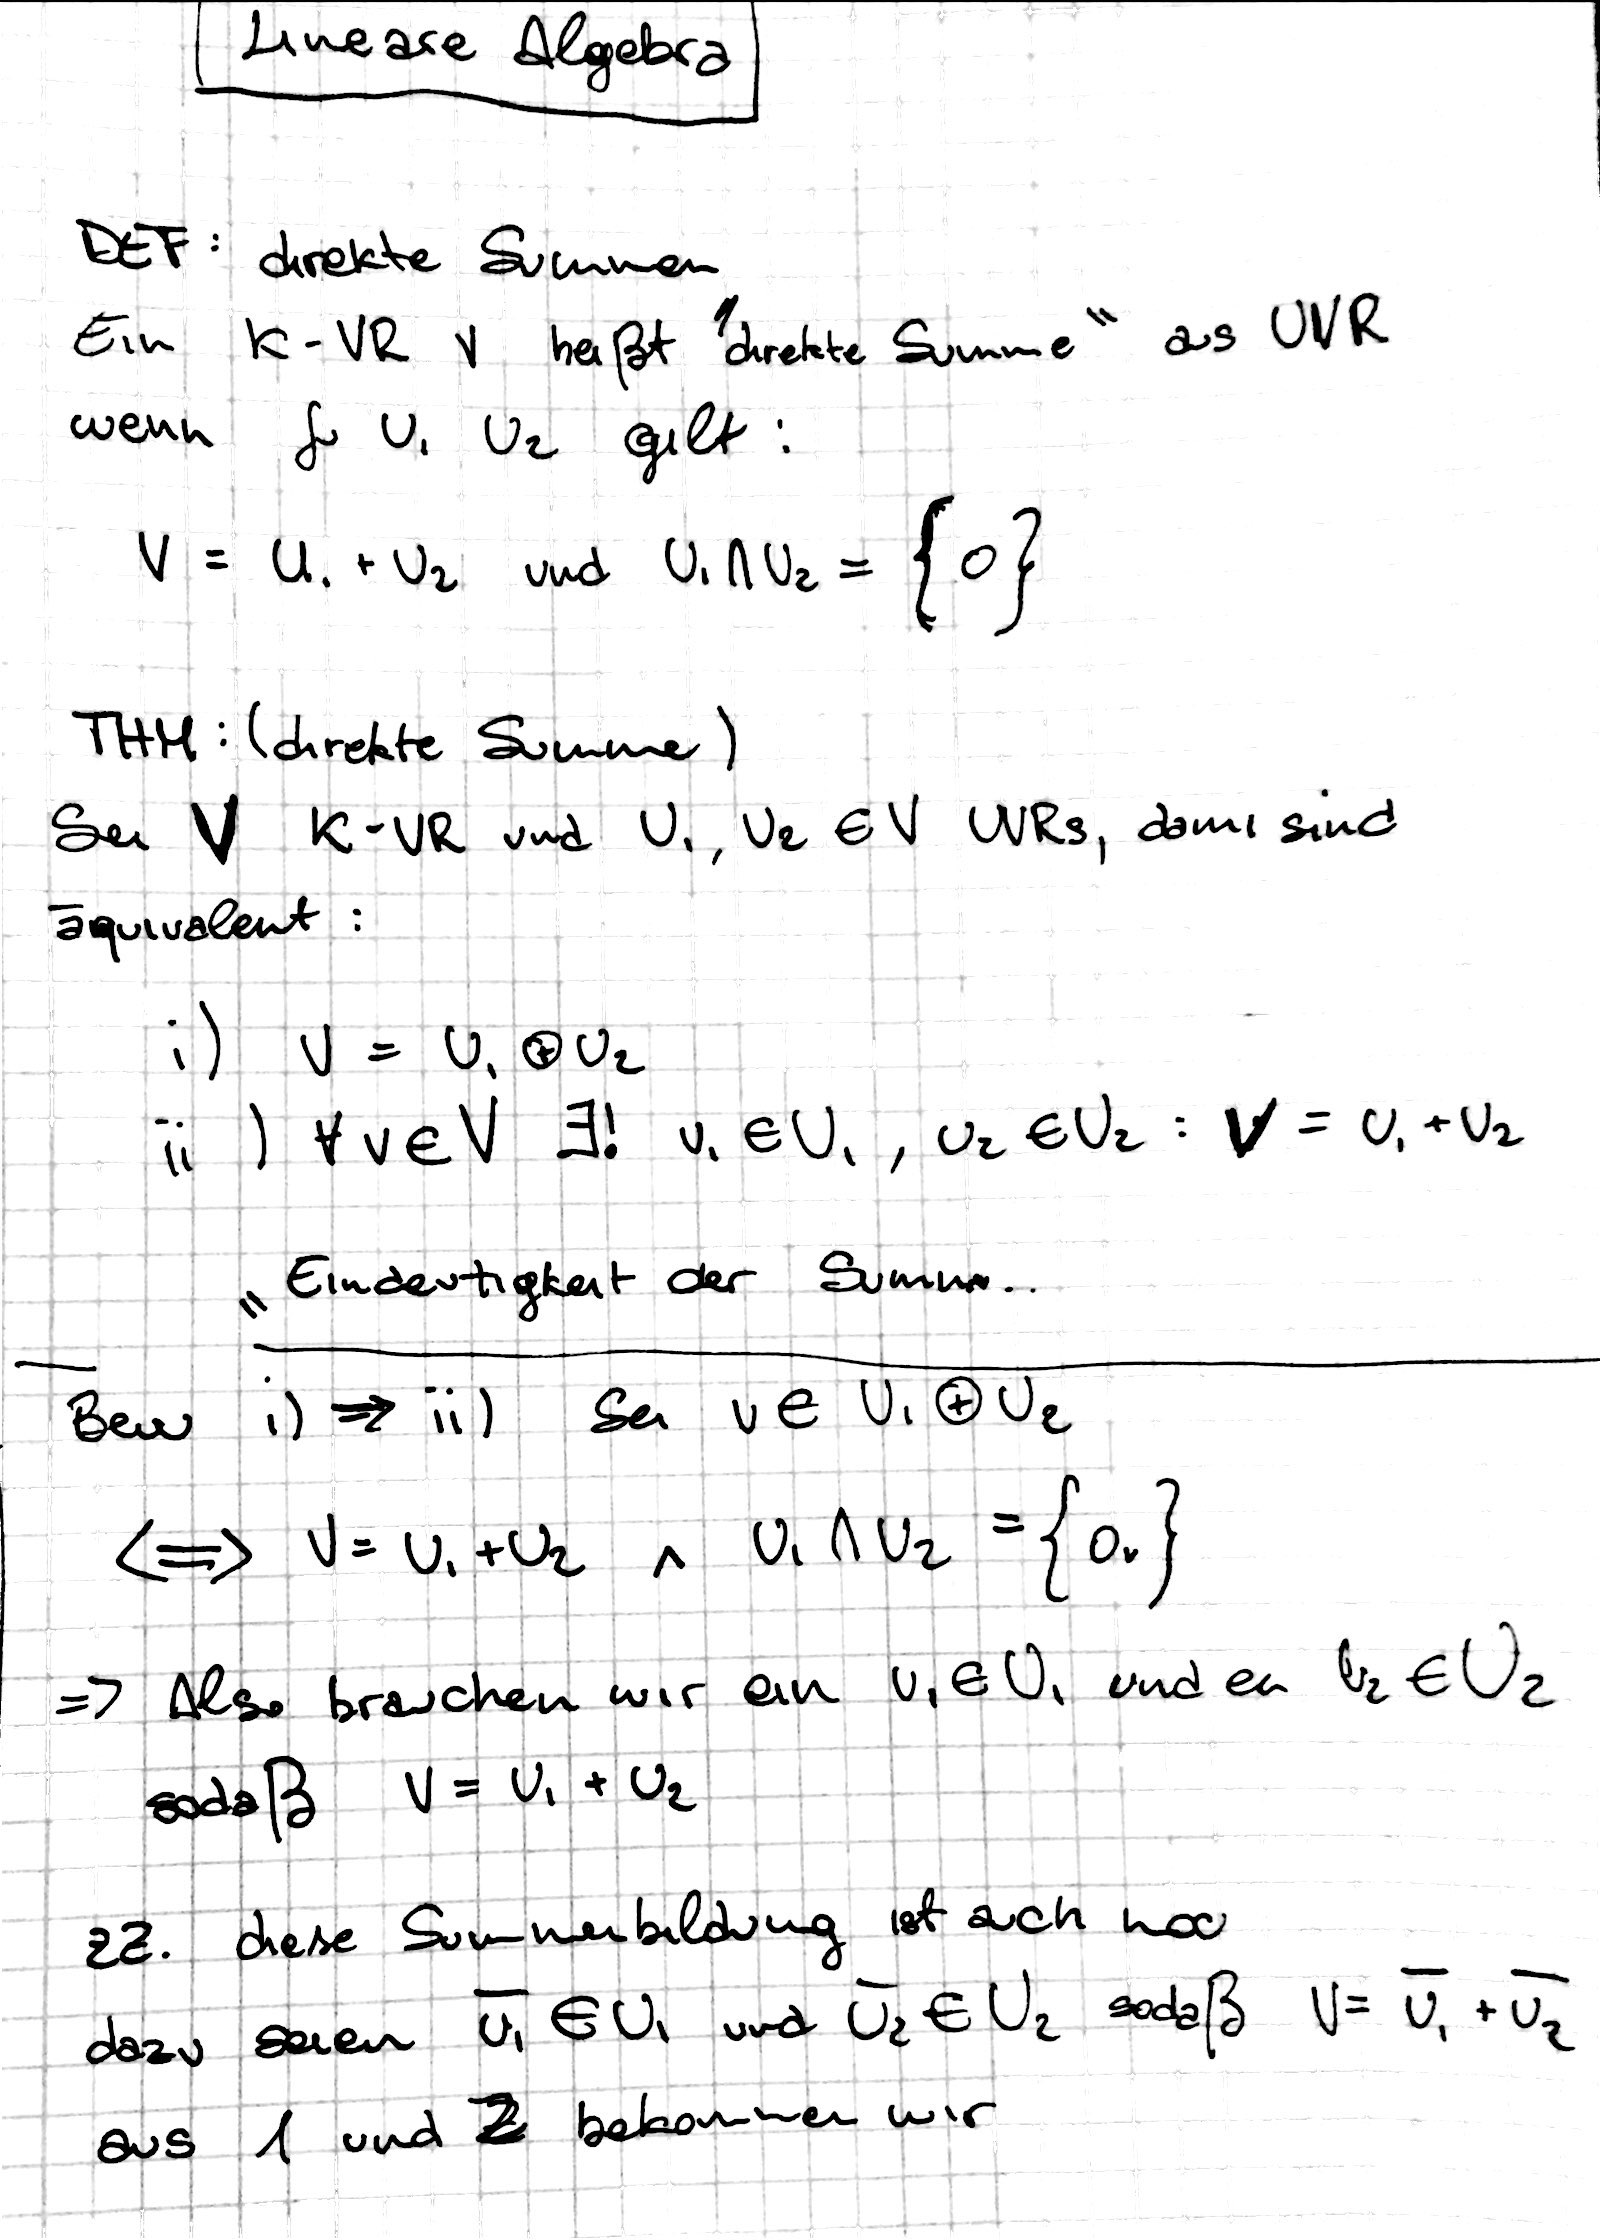 Lineare Algebra
DEF: direkte Summen
Ein K-VR V heißt "direkte Summe" aus UVR
wenn U₁ U₂ gilt:
V = U₁ + U₂ und U₁ ∩ U₂ = {0}
THM: (direkte Summe)
Sei V K-VR und U₁, U₂ ∈ V UVRs, dann sind
äquivalent:
i) V = U₁ ⊕ U₂
ii) ∀ v ∈ V ∃! u₁ ∈ U₁, u₂ ∈ U₂ : v = u₁ + u₂
"Eindeutigkeit der Summen"
Bew i) ⇒ ii) Sei v ∈ U₁ ⊕ U₂
<=> V = U₁ + U₂ ∧ U₁ ∩ U₂ = {0ᵥ}
=> Also brauchen wir ein u₁ ∈ U₁ und ein u₂ ∈ U₂
sodaß v = u₁ + u₂
zZ. diese Summenbildung ist auch
dazu seien u̅₁ ∈ U₁ und u̅₂ ∈ U₂ sodaß v = u̅₁ + u̅₂
aus 1 und 2 bekommen wir